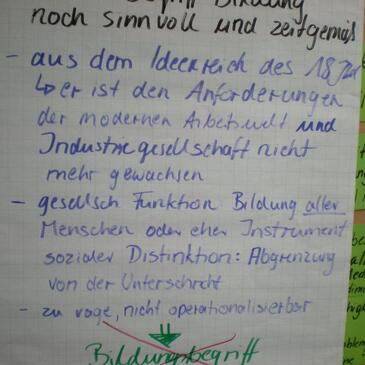 Begriff Bildung
noch sinnvoll und zeitgemäß
- aus dem Ideenreich des 18. Jhd
↳ er ist den Anforderungen
der modernen Arbeitswelt und
Industriegesellschaft nicht
mehr gewachsen
- gesellsch Funktion Bildung aller
Menschen oder eher Instrument
sozialer Distinktion: Abgrenzung
von der Unterschicht
- zu vage, nicht operationalisierbar
Bildungsbegriff